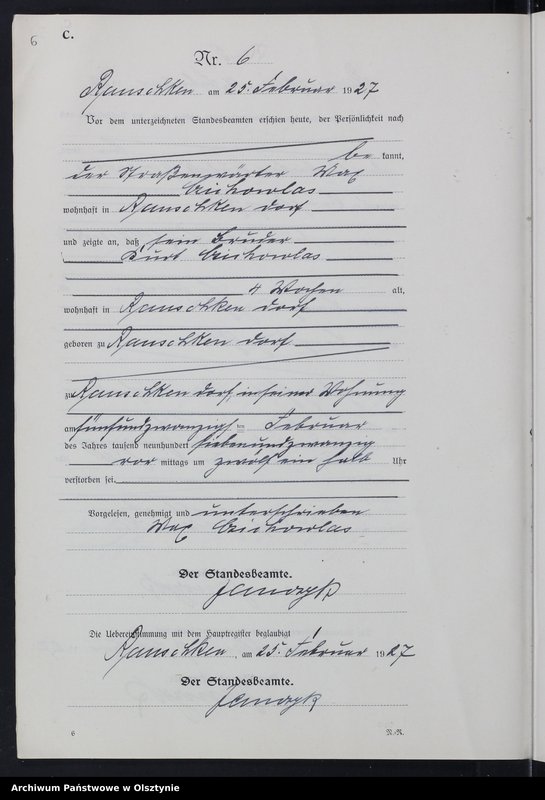 6
C.
Nr. 6
Rauschken am 25. Februar 1927
Vor dem unterzeichneten Standesbeamten erschien heute, der Persönlichkeit nach
be kannt,
der Straßenwärter Max
Cichowlas
wohnhaft in Rauschken dorf
und zeigte an, daß sein Bruder
Kurt Cichowlas
4 Wochen alt,
wohnhaft in Rauschken dorf
geboren zu Rauschken dorf
zu Rauschken dorf, in seiner Wohnung
am fünfundzwanzigs ten Februar
des Jahres tausend neunhundert siebenundzwanzig
vor mittags um zwölf ein halb Uhr
verstorben sei.
Vorgelesen, genehmigt und unterschrieben
Max Cichowlas
Der Standesbeamte.
Die Uebereinstimmung mit dem Hauptregister beglaubigt
Rauschken, am 25. Februar 1927
Der Standesbeamte.
6
N.-N.
Archiwum Państwowe w Olsztynie